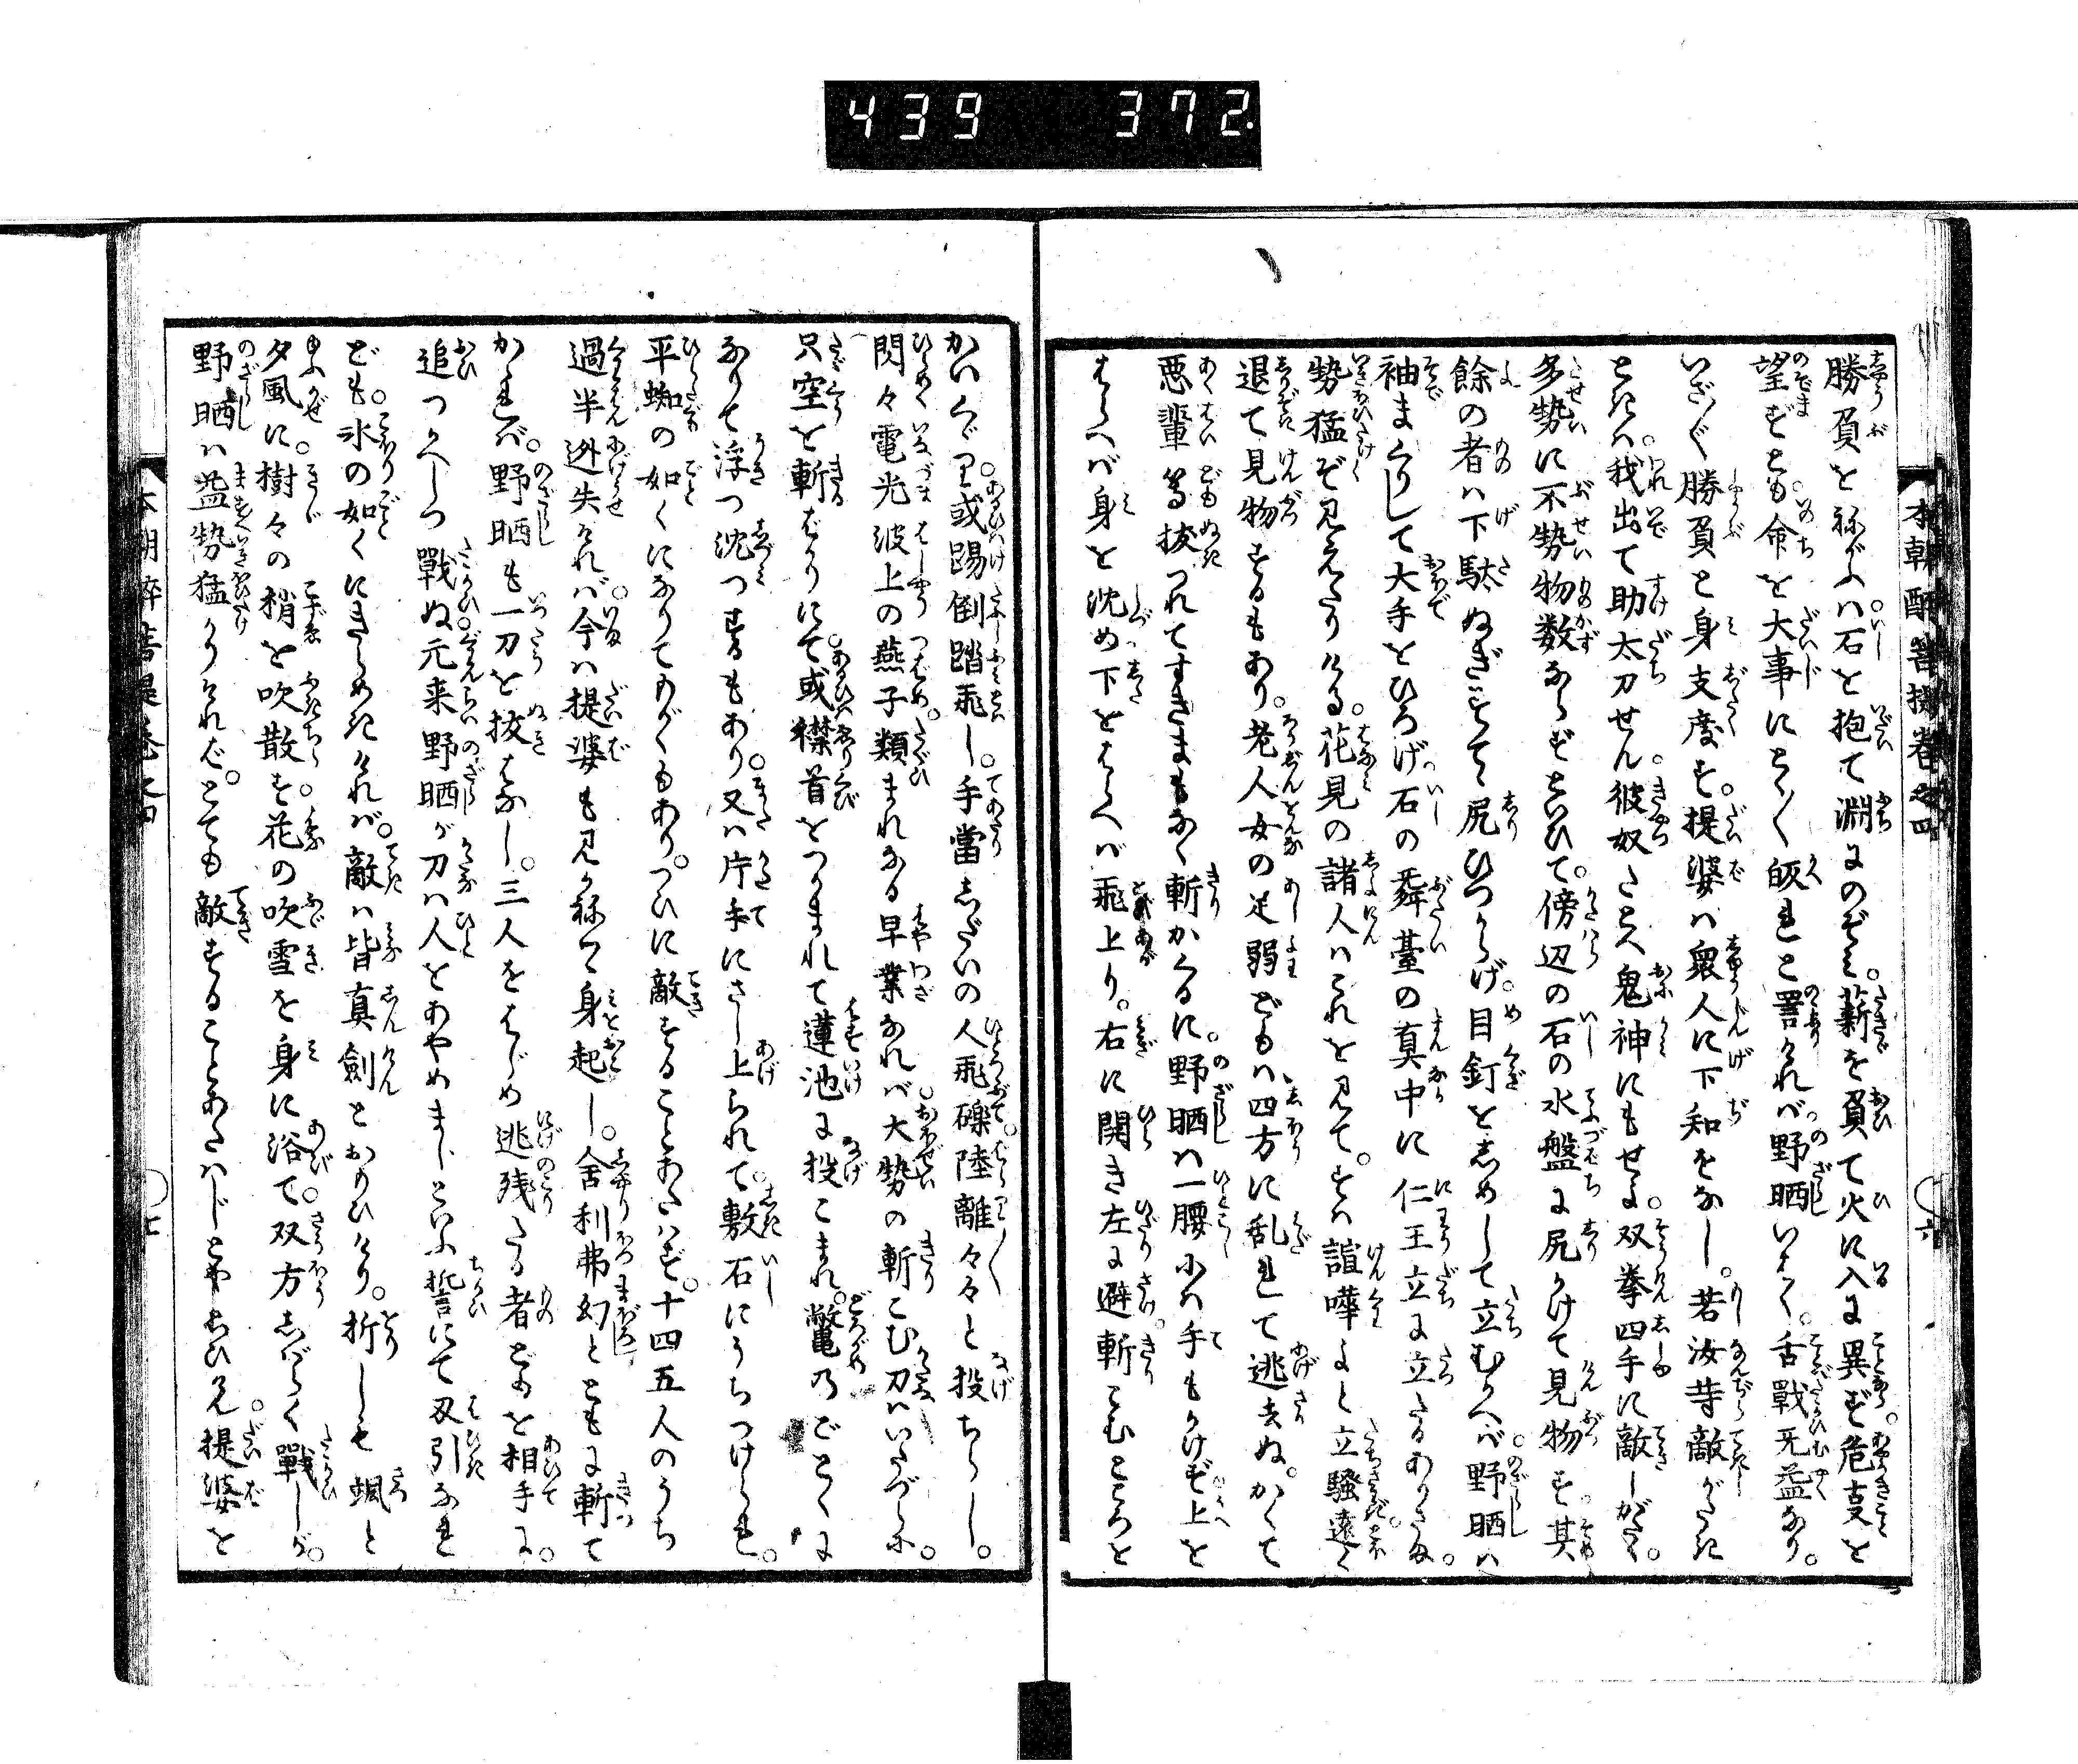 439 372.
本朝酔菩提巻之四
六
勝負を祢がふハ石を抱て淵にのぞミ。薪を負て火に入に異ず危き支を
望ずとも命を大事にとく〳〵皈れと詈けれバ野晒いはく。舌戦无益なり。
いざ〳〵勝負と身支度す。提婆ハ衆人に下知をなし。若汝等敵がたき
ときハ我出て助太刀せん彼奴たとへ鬼神にもせよ。双拳四手に敵しがたく。
多勢に不勢物数ならずといひて。傍辺の石の水盤に尻かけて見物す其
餘の者ハ下駄ぬぎすてゝ尻ひつからげ。目釘をしめして立むかへバ野晒ハ
袖まくりして大手をひろげ石の舞臺の真中に仁王立に立たるありさま。
勢猛ぞ見えたりける。花見の諸人ハこれを見て。すハ諠嘩よと立騒遠く
退て見物するもあり。老人女の足弱どもハ四方に乱れて逃去ぬ。かくて
悪輩等抜つれてすきまもなく斬かくるに。野晒ハ一腰にハ手もかけず上を
はらへバ身を沈め下をはらへバ飛上り。右に開き左に避斬こむところを
かいくゞり或踢倒踏飛し。手當しだいの人飛礫陸離々々と投ちらし。
閃々電光波上の燕子類まれなる早業なれバ大勢の斬こむ刀ハいたづらに。
只空を斬ばかりにて或襟首をつかまれて蓮池に投こまれ。鼈のごとくに
なりて浮つ沈つするもあり。又ハ片手にさし上られて。敷石にうちつけられ。
平蜘の如くになりてもがくもあり。つひに敵することあたハず。十四五人のうち
過半迯失けれバ。今ハ提婆も見かねて身起し。舎利弗幻ともに斬て
かゝれバ。野晒も一刀を抜はなし。三人をはじめ逃残たる者どもを相手に。
追つかへしつ戦ぬ元来野晒が刀ハ人をあやめまじといふ誓にて刃引なれ
ども。氷の如くにきらめきけれバ。敵ハ皆真劔とおもひけり。折しも颯と
夕風に。樹々の梢を吹散す花の吹雪を身に浴て。双方しばらく戦しが。
野晒ハ益勢猛かりけれバ。とても敵することあたハじとやおもひけん提婆を
本朝酔菩提巻之四
七